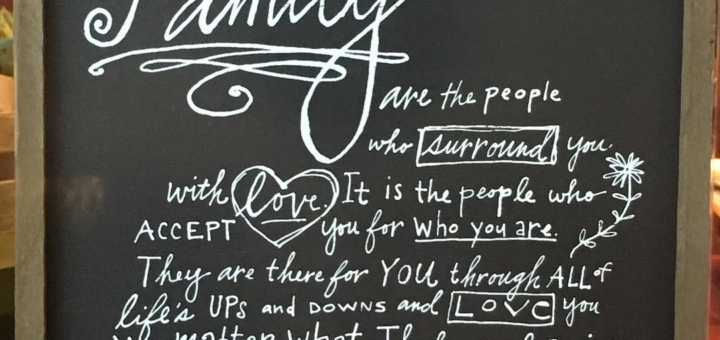 Family
are the people
who surround you
with love. It is the people who
ACCEPT you for Who you are.
They are there for YOU through ALL of
life's UPs and DOWNS and LOVE you
matter what.